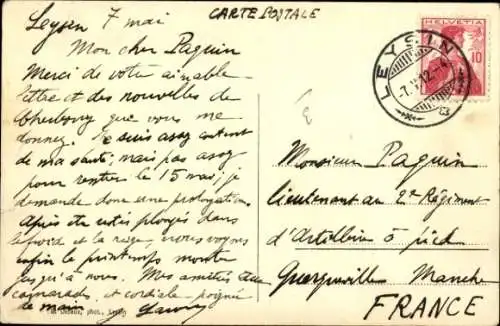 CARTE POSTALE
Leysin 7 mai
Mon cher Paquin
Merci de votre aimable
lettre et des nouvelles de
Cherbourg que vous me
donnez. Je suis assez content
de ma santé; mais pas assez
pour rentrer le 15 mai; je
demande donc une prolongation
Après être restés plongés dans
le froid et la neige, nous voyons
enfin le printemps monter
jusqu'à nous. Mes amitiés aux
camarades et cordiale poignée
de main
phot., Leysin
HELVETIA
10
LEYSIN
-7.V.12.-4
Monsieur Paquin
Lieutenant au 2e Régiment
d'Artillerie à pied
Querqueville Manche
FRANCE